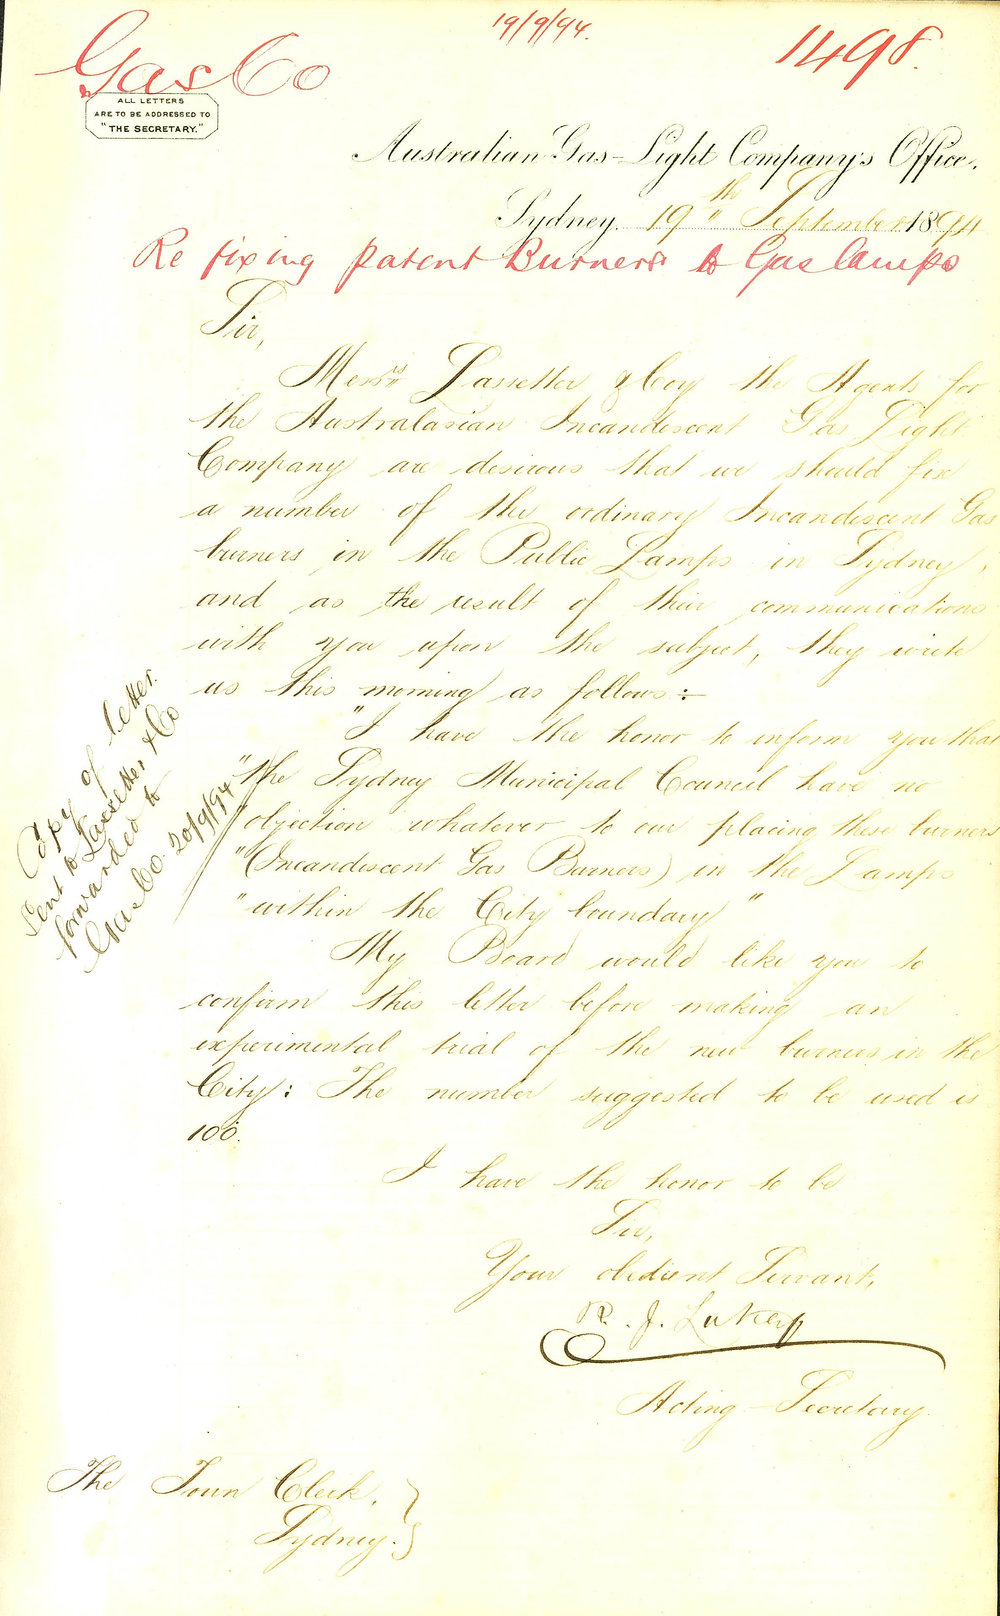 19/9/94.
Gas Co
1498.
ALL LETTERS
ARE TO BE ADDRESSED TO
"THE SECRETARY."
Australian Gas-Light Company's Office.
Sydney. 19th September 1894
Re fixing patent Burners to Gas Lamps
Sir,
Messrs Lassetter & Coy the Agents for
the Australasian Incandescent Gas Light
Company are desirous that we should fix
a number of the ordinary Incandescent Gas
burners in the Public Lamps in Sydney,
and as the result of their communications
with you upon the subject, they write
us this morning as follows:-
"I have the honor to inform you that
"the Sydney Municipal Council have no
"objection whatever to our placing these burners
"(Incandescent Gas Burners) in the Lamps
"within the City boundary"
My Board would like you to
confirm this letter before making an
experimental trial of the new burners in the
City: The number suggested to be used is
100.
I have the honor to be
Sir,
Your obedient Servant,
R. J.
Acting-Secretary.
The Town Clerk,
Sydney.
Copy of letter
sent to Lassetter & Co
forwarded to
Gas Co. 20/9/94